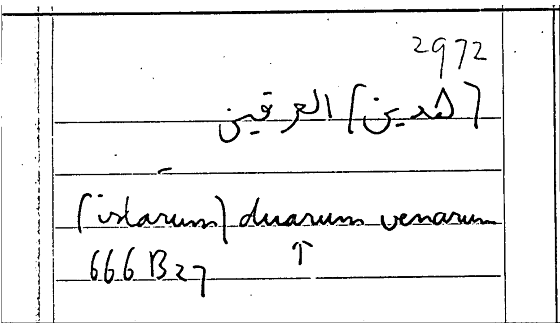 2972
(هذين) العرقين
(istarum) duarum venarum
666 B27 ↑